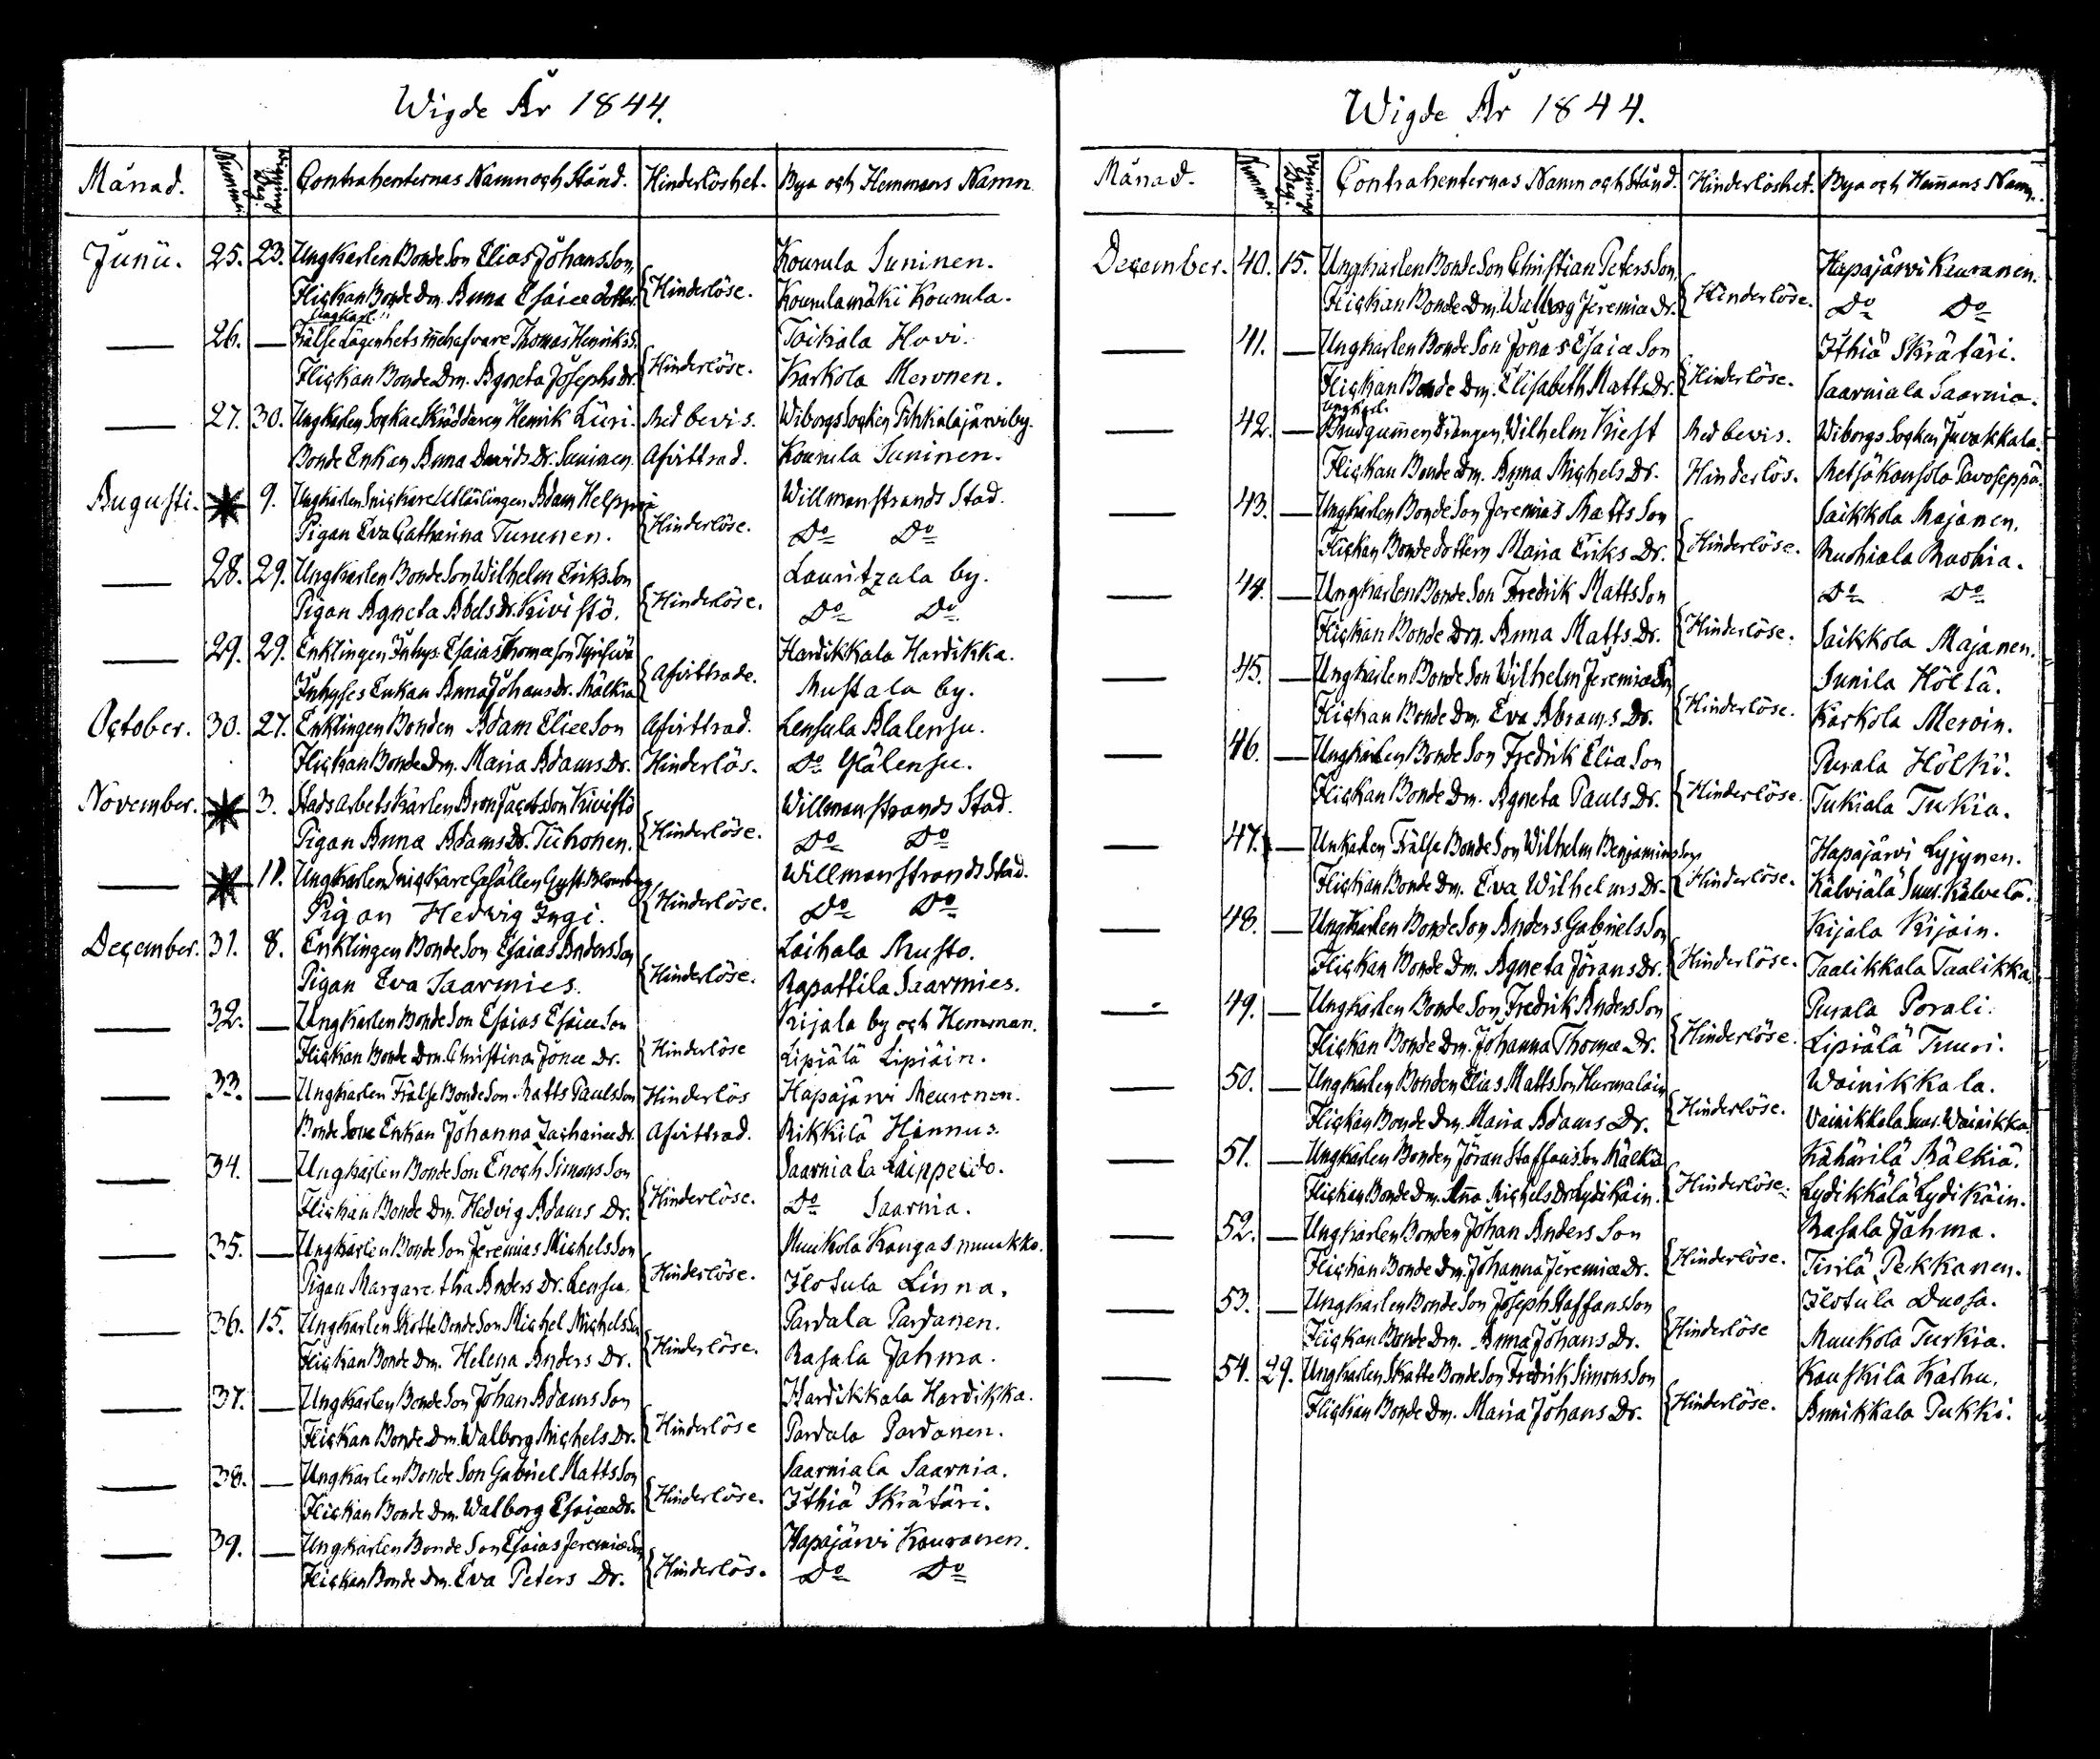 Wigde År 1844.
Månad. Nummer. Wignings Dag. Contrahenternas Namn och Stånd. Hinderlöshet. Bya och Hemmans Namn.
Junii. 25. 23. Ungkarlen Bonde Son Elias Johans Son, Kourula Suninen.
Flickan Bonde Dm. Anna Esaiæ dotter. Hinderlöse. Kourulamäki Kourula.
Ungkarl.
— 26. — Frälse Lägenhets innehafvare Thomas Henriks S. Toikala Hovi.
Flickan Bonde Dm. Agneta Josephs Dr. Hinderlöse. Karkola Meronen.
— 27. 30. Ungkarlen Sockne Skräddaren Henrik Liiri. Med bevis. Wiborgs Socken Pihkalajärvi by.
Bonde Enkan Anna Davids Dr. Suninen. Afvittrad. Kourula Suninen.
Augusti. 9. Ungkarlen Snickare Utlärlingen Adam Helppiä Willmanstrands Stad.
Pigan Eva Catharina Tuninen. Hinderlöse. Do Do
— 28. 29. Ungkarlen Bonde Son Wilhelm Eriks Son Lauritzala by.
Pigan Agneta Abels Dr. Kivistö. Hinderlöse. Do Do
— 29. 29. Enklingen Inhys. Esaias Thomæ Son Hardikkala Hardikka.
Inhyses Enkan Anna Johans Dr. Mälkiä Afvittrade. Mustala by.
October. 30. 27. Enklingen Bonden Adam Eliæ Son Afvittrad. Lensula Alalensu.
Flickan Bonde Dm. Maria Adams Dr. Hinderlös. Do Ylälensu.
November. 3. Stads arbets Karlen Aron Jacobs Son Kivistö Willmanstrands Stad.
Pigan Anna Adams Dr. Tiihonen. Hinderlöse. Do Do
— 11. Ungkarlen Snickare Gesällen Gust. Blomberg Willmanstrands Stad.
Pigan Hedvig Ingi. Hinderlöse. Do Do
December. 31. 8. Enklingen Bonde Son Esaias Anders Son Laihala Musto.
Pigan Eva Saarmies. Hinderlöse. Rapattila Saarmies.
— 32. — Ungkarlen Bonde Son Esaias Esaiæ Son Kijala by och Hemman.
Flickan Bonde Dm. Christina Jonæ Dr. Hinderlöse Lipiälä Lipiäin.
— 33. — Ungkarlen Frälse Bonde Son Matts Pauls Son Hinderlös Hapajärvi Meuronen.
Bonde Sone Enkan Johanna Zachariæ Dr. Afvittrad. Rikkilä Hannus.
— 34. — Ungkarlen Bonde Son Enoch Simons Son Saarniala Laippeido.
Flickan Bonde Dm. Hedvig Adams Dr. Hinderlöse. Do Saarnia.
— 35. — Ungkarlen Bonde Son Jeremias Michels Son Muukola Kangasmuukko.
Pigan Margaretha Anders Dr. Lensu. Hinderlöse. Ilotula Linna.
— 36. 15. Ungkarlen Skatte Bonde Son Michel Michels Son Pardala Pardanen.
Flickan Bonde Dm. Helena Anders Dr. Hinderlöse. Rasala Jahma.
— 37. — Ungkarlen Bonde Son Johan Adams Son Hardikkala Hardikka.
Flickan Bonde Dm. Walborg Michels Dr. Hinderlöse Pardala Pardanen.
— 38. — Ungkarlen Bonde Son Gabriel Matts Son Saarniala Saarnia.
Flickan Bonde Dm. Walborg Esaiæ Dr. Hinderlöse. Ithiä Skrätäri.
— 39. — Ungkarlen Bonde Son Esaias Jeremiæ Son Hapajärvi Kauranen.
Flickan Bonde Dm. Eva Peters Dr. Hinderlös. Do Do
Wigde År 1844.
Månad. Nummer. Wignings Dag. Contrahenternas Namn och Stånd. Hinderlöshet. Bya och Hemmans Namn.
December. 40. 15. Ungkarlen Bonde Son Christian Peters Son, Hapajärvi Kauranen.
Flickan Bonde Dm. Walborg Jeremiæ Dr. Hinderlöse. Do Do
— 41. — Ungkarlen Bonde Son Jonas Esaiæ Son Ithiä Skrätäri.
Flickan Bonde Dm. Elisabeth Matts Dr. Hinderlöse. Saarniala Saarnia.
Ungkarl.
— 42. — Brudgummen Drängen Wilhelm Kiest Med bevis. Wiborgs Socken Juvakkala.
Flickan Bonde Dm. Anna Michels Dr. Hinderlös. Metsäkansola Pavoseppä.
— 43. — Ungkarlen Bonde Son Jeremias Matts Son Saikkola Majanen.
Flickan Bonde dottern Maria Eriks Dr. Hinderlöse. Ruohiala Ruohia.
— 44. — Ungkarlen Bonde Son Fredrik Matts Son Do Do
Flickan Bonde Dm. Anna Matts Dr. Hinderlöse. Saikkola Majanen.
— 45. — Ungkarlen Bonde Son Wilhelm Jeremiæ Son Sunila Höltä.
Flickan Bonde Dm. Eva Abrams Dr. Hinderlöse. Karkola Meroin.
— 46. — Ungkarlen Bonde Son Fredrik Eliæ Son Purala Hölki.
Flickan Bonde Dm. Agneta Pauls Dr. Hinderlöse. Tukiala Tukia.
— 47. — Unkarlen Frälse Bonde Son Wilhelm Benjamins Son Hapajärvi Lyjynen.
Flickan Bonde Dm. Eva Wilhelms Dr. Hinderlöse. Kälviälä Suur Kälvelä.
— 48. — Ungkarlen Bonde Son Anders Gabriels Son Kijala Kijain.
Flickan Bonde Dm. Agneta Jörans Dr. Hinderlöse. Taalikkala Taalikka.
— 49. — Ungkarlen Bonde Son Fredrik Anders Son Purala Porali.
Flickan Bonde Dm. Johanna Thomæ Dr. Hinderlöse. Lipiälä Tuuri.
— 50. — Ungkarlen Bonden Elias Matts Son Hurmalain Wainikkala.
Flickan Bonde Dm. Maria Adams Dr. Hinderlöse. Wainikkala Suur Wainikka.
— 51. — Ungkarlen Bonden Jöran Staffans Son Mälkiä Kähärilä Mälkiä.
Flickan Bonde Dm. Anna Michels Dr Lydikäin. Hinderlöse. Lydikkälä Lydikäin.
— 52. — Ungkarlen Bonden Johan Anders Son Rasala Jahma.
Flickan Bonde Dm. Johanna Jeremiæ Dr. Hinderlöse. Tirilä Pekkanen.
— 53. — Ungkarlen Bonde Son Joseph Staffans Son Ilotula Duosa.
Flickan Bonde Dm. Anna Johans Dr. Hinderlöse Muukola Turkia.
— 54. 29. Ungkarlen Skatte Bonde Son Fredrik Simons Son Kauskila Karhu.
Flickan Bonde Dm. Maria Johans Dr. Hinderlöse. Annikkala Pukki.